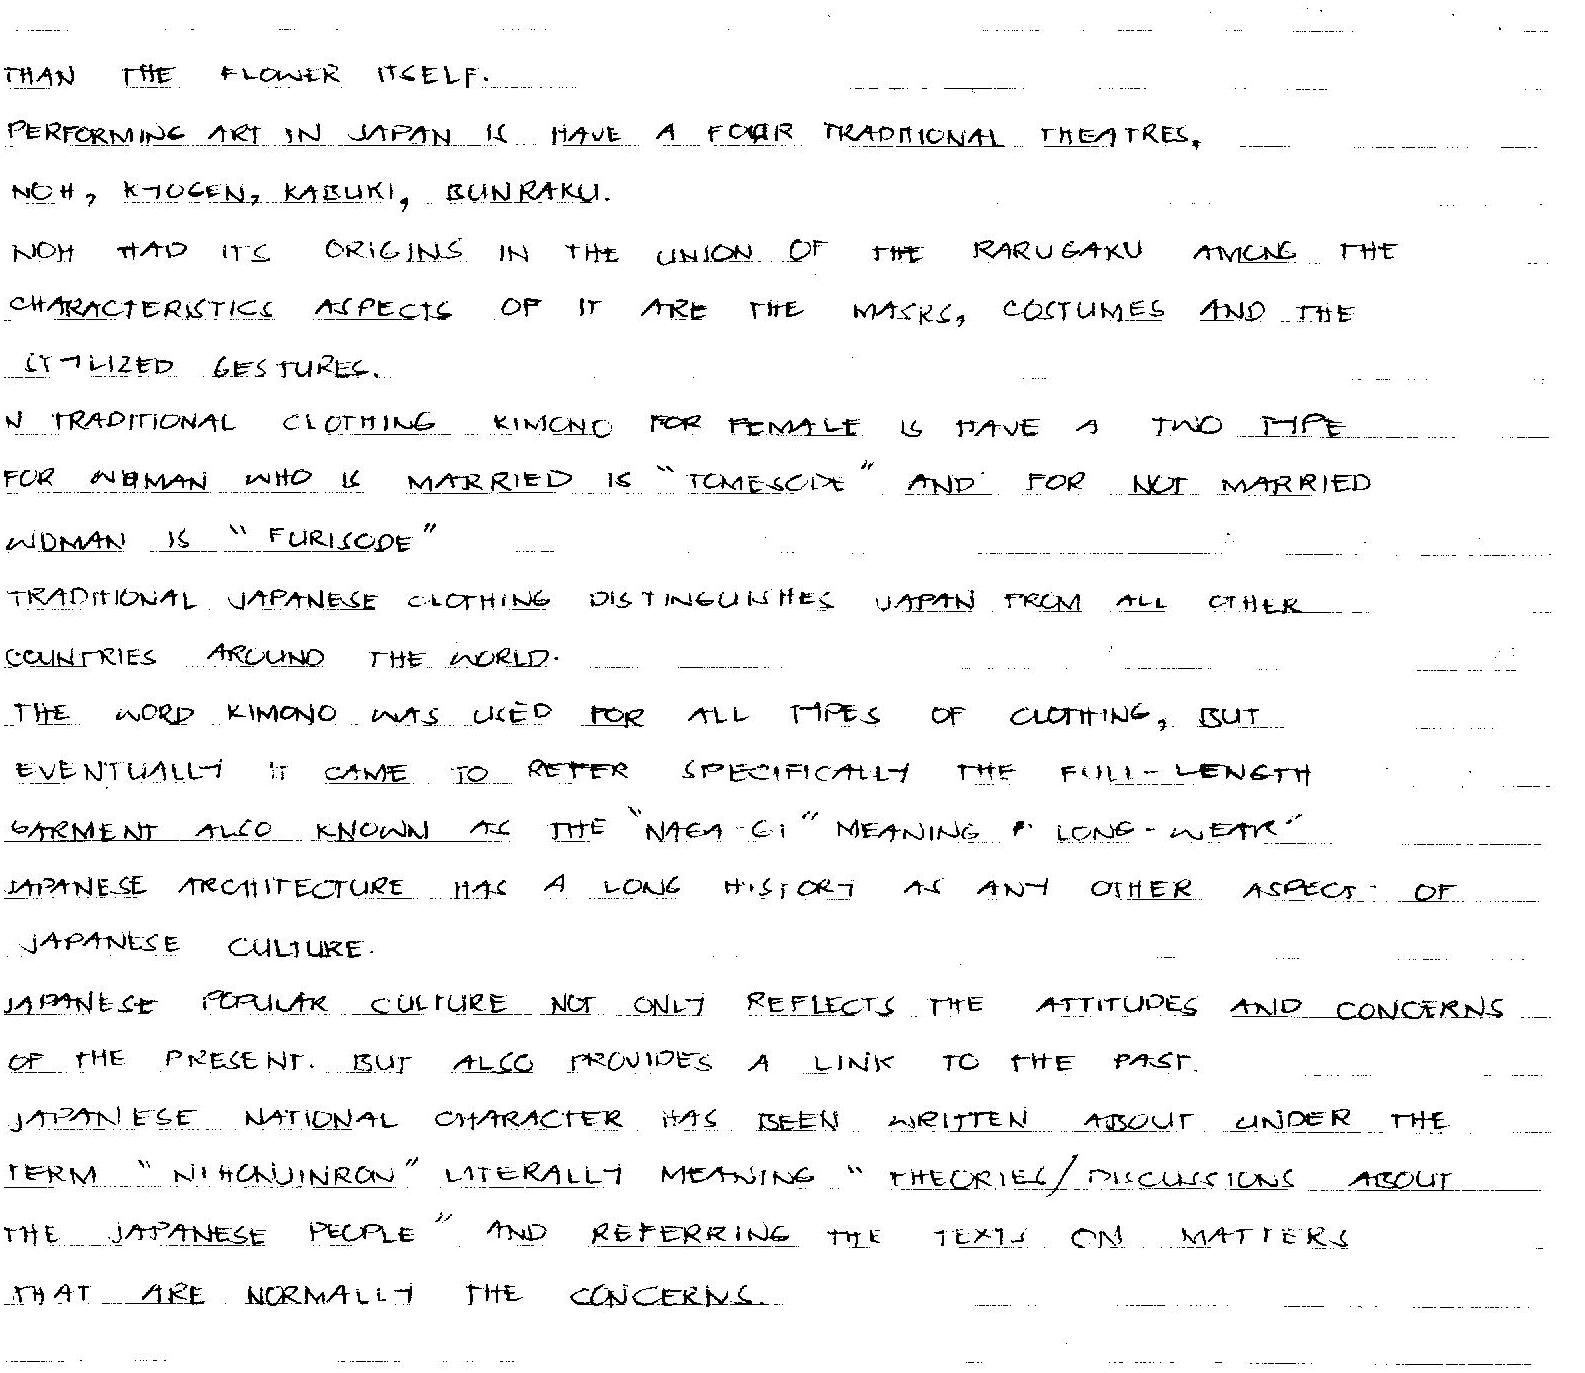 THAN THE FLOWER ITSELF.
PERFORMING ART IN JAPAN IS HAVE A FOUR TRADITIONAL THEATRES,
NOH, KYOGEN, KABUKI, BUNRAKU.
NOH HAD ITS ORIGINS IN THE UNION OF THE RARUGAKU AMONG THE
CHARACTERISTICS ASPECTS OF IT ARE THE MASKS, COSTUMES AND THE
STYLIZED GESTURES.
N TRADITIONAL CLOTHING KIMONO FOR FEMALE IS HAVE A TWO TYPE
FOR WOMAN WHO IS MARRIED IS "TOMESODE" AND FOR NOT MARRIED
WOMAN IS "FURISODE"
TRADITIONAL JAPANESE CLOTHING DISTINGUISHES JAPAN FROM ALL OTHER
COUNTRIES AROUND THE WORLD.
THE WORD KIMONO WAS USED FOR ALL TYPES OF CLOTHING, BUT
EVENTUALLY IT CAME TO REFER SPECIFICALLY THE FULL-LENGTH
GARMENT ALSO KNOWN AS THE "NAGA-GI" MEANING " LONG-WEAR"
JAPANESE ARCHITECTURE HAS A LONG HISTORY AS ANY OTHER ASPECT OF
JAPANESE CULTURE.
JAPANESE POPULAR CULTURE NOT ONLY REFLECTS THE ATTITUDES AND CONCERNS
OF THE PRESENT. BUT ALSO PROVIDES A LINK TO THE PAST.
JAPANESE NATIONAL CHARACTER HAS BEEN WRITTEN ABOUT UNDER THE
TERM "NIHONJINRON" LITERALLY MEANING "THEORIES/DISCUSSIONS ABOUT
THE JAPANESE PEOPLE" AND REFERRING THE TEXTS ON MATTERS
THAT ARE NORMALLY THE CONCERNS.